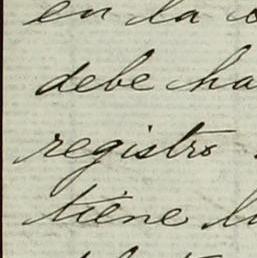 en la
debe ha
registro
tiene